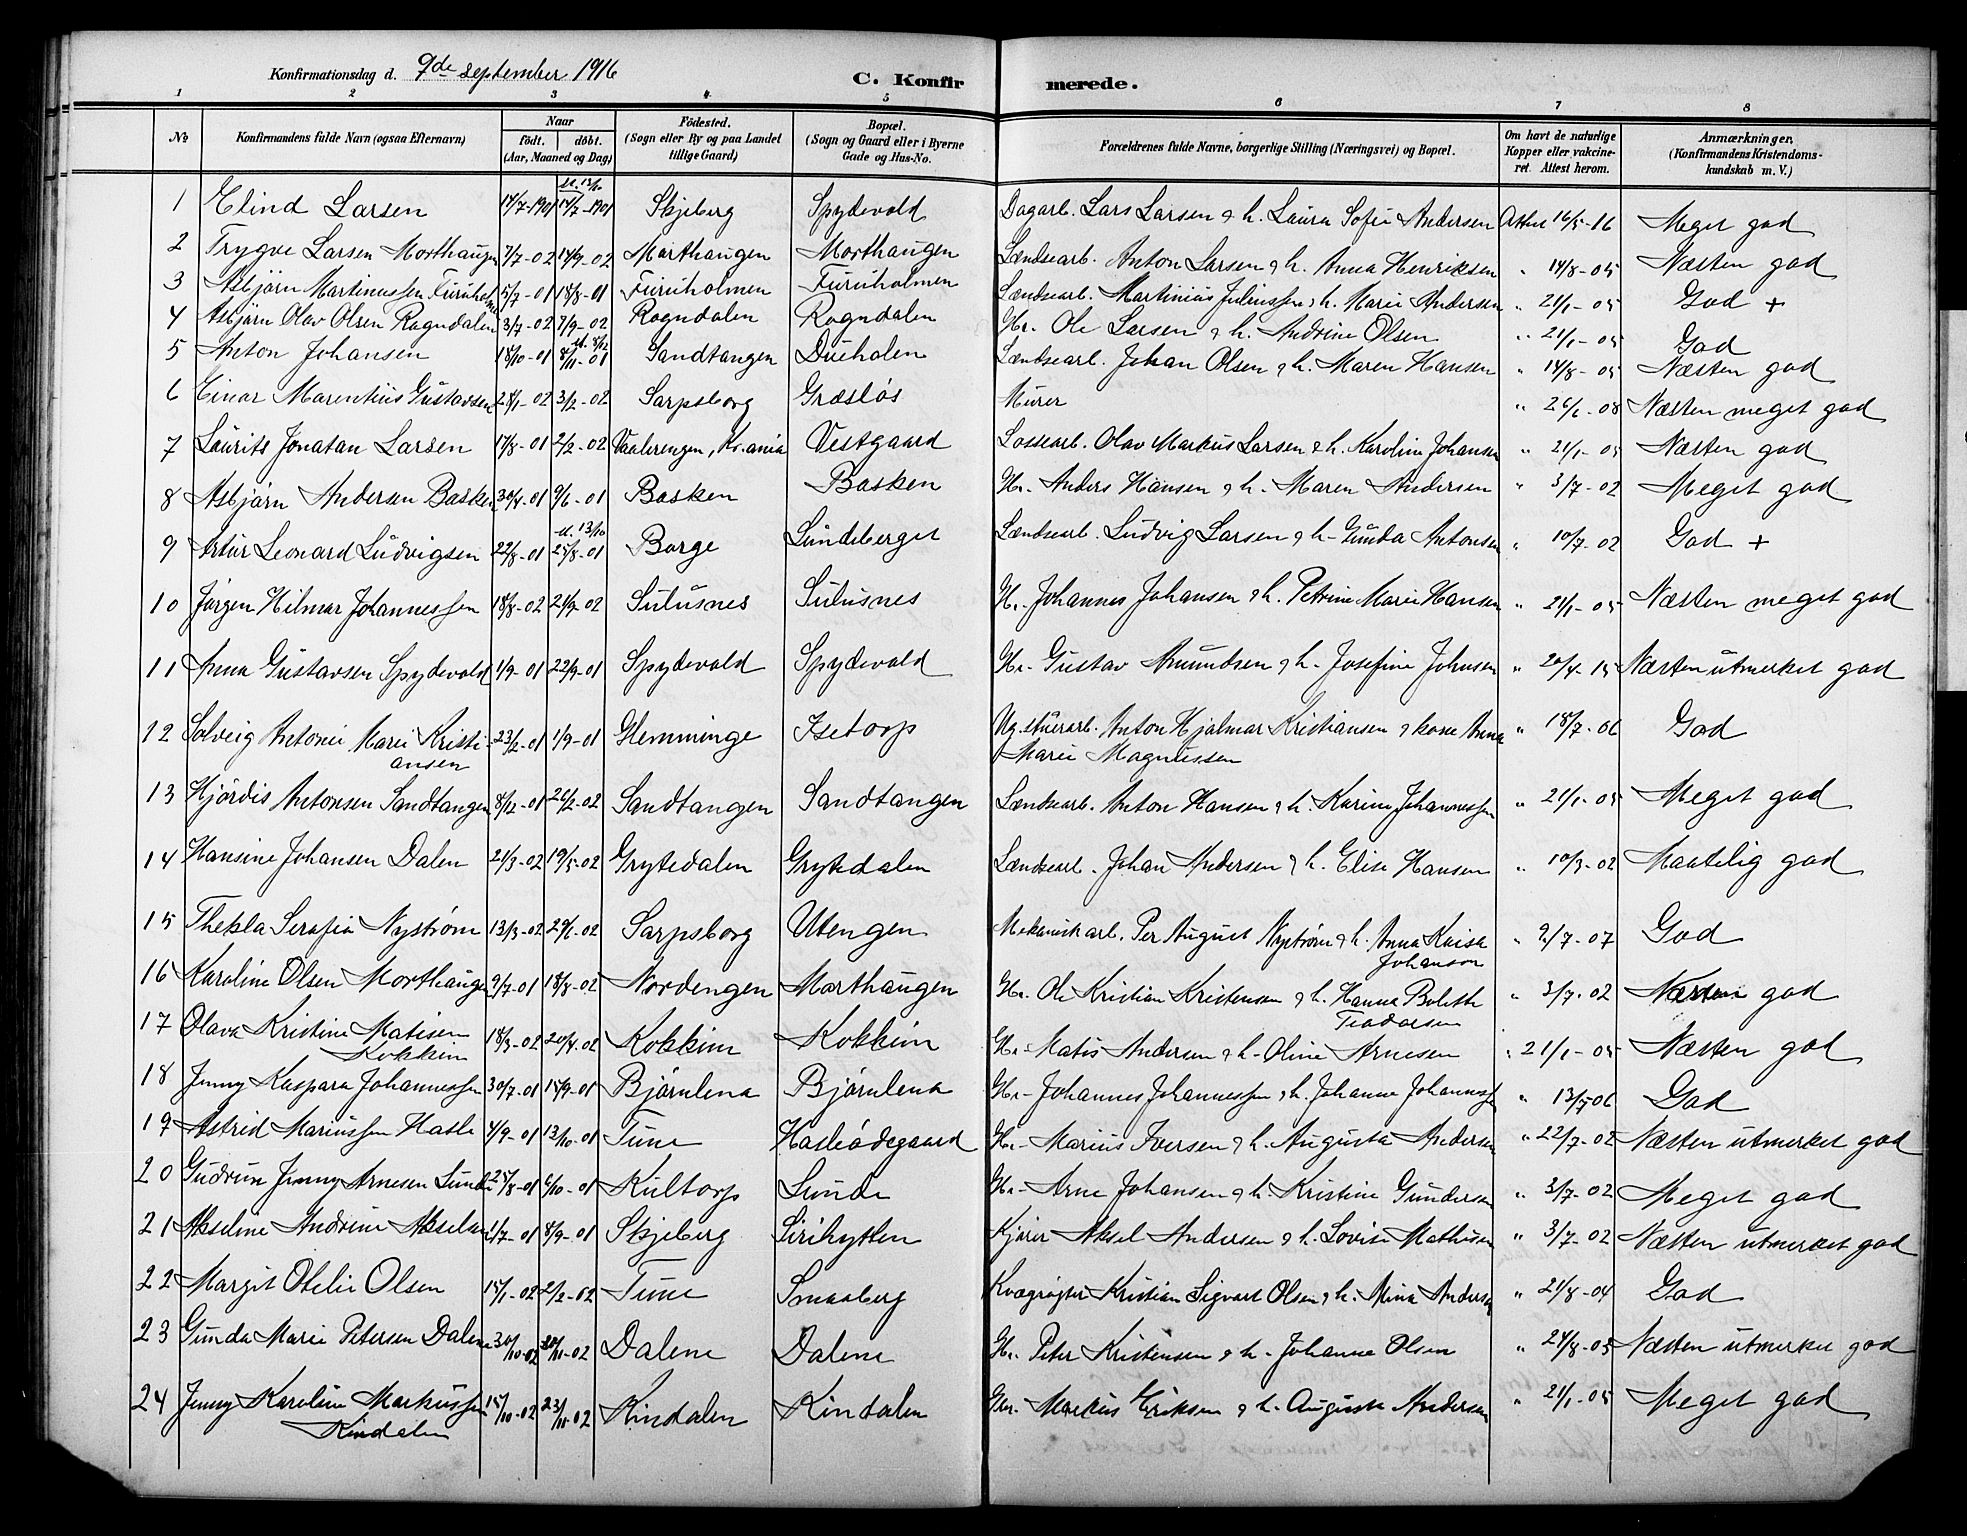 Konfirmationsdag d. 9de september 1916
C. Konfirmerede.
1 2 3 4 5 6 7 8
No Konfirmandens fulde Navn (ogsaa Efternavn) Naar født. døbt. (Aar, Maaned og Dag) Fødested. (Sogn eller By og paa Landet tillige Gaard) Bopæl. (Sogn og Gaard eller i Byerne Gade og Hus-No. Forældrenes fulde Navne, borgerlige Stilling (Næringsvei) og Bopæl. Om havt de naturlige Kopper eller vakcineret. Attest herom. Anmærkninger. (Konfirmandens Kristendomskundskab m. V.)
1 Elind Larsen 14/7-1901 14/7-1901 st. 13/10 Skjeberg Spydevold Dagarb. Lars Larsen & h. Laura Sofie Andersen Attest 16/5-16 Meget god
2 Trygve Larsen Morthaugen 7/7-02 14/9-02 Morthaugen Morthaugen Lændsearb. Anton Larsen & h. Anna Henriksen " 14/8-05 Næsten god
3 Asbjørn Martinussen Furuholmen 5/7-01 18/8-01 Furuholmen Furuholmen Lændsearb. Martinius Juliussen & h. Marie Andersen " 21/1-05 God +
4 Asbjørn Olav Olsen Rogndalen 3/7-02 7/9-02 Rogndalen Rogndalen Hr. Ole Larsen & h. Andrine Olsen " 21/1-05 God
5 Anton Johansen 18/10-01 8/11-01 Sandtangen Duehalen Lændsearb. Johan Olsen & h. Maren Hansen " 14/8-05 Næsten god
6 Einar Marentius Gustavsen 28/1-02 3/2-02 Sarpsborg Græsløs Murer " 26/6-08 Næsten meget god
7 Laurits Jonatan Larsen 17/8-01 2/2-02 Vaalerengen, Kr.ania Vestgaard Lossearb. Olav Markus Larsen & h. Karoline Johansen " 21/1-05 Næsten god
8 Asbjørn Andersen Basken 30/4-01 9/6-01 Basken Basken Hr. Anders Hansen & h. Maren Andersen " 3/7-02 Meget god
9 Artur Leonard Ludvigsen 22/8-01 25/8-01 st. 13/10 Borge Sundeberget Lændsearb. Ludvig Larsen & h. Gunda Antonsen " 10/7-02 God +
10 Jørgen Hilmar Johannessen 18/8-02 21/9-02 Sulusnes Sulusnes Hr. Johannes Johansen & h. Petrine Marie Hansen " 21/1-05 Næsten meget god
11 Anna Gustavsen Spydevold 1/9-01 22/9-01 Spydevold Spydevold Hr. Gustav Amundsen & h. Josefine Johnsen " 20/4-15 Næsten utmerket god
12 Solveig Antonie Marie Kristiansen 23/2-01 1/9-01 Glemminge Isetorp Ug. stuerarb. Anton Hjalmar Kristiansen & kone Anna Marie Magnussen " 18/7-06 God
13 Hjørdis Antonsen Sandtangen 8/12-01 26/2-02 Sandtangen Sandtangen Lændsearb. Anton Hansen & h. Karine Johannessen " 21/1-05 Meget god
14 Hansine Johansen Dalen 21/3-02 19/5-02 Grytedalen Grytedalen Lændsearb. Johan Andersen & h. Elise Hansen " 10/3-02 Maatelig god
15 Thekla Serafia Nystrøm 13/3-02 29/6-02 Sarpsborg Utengen Mekanisk arb. Per August Nystrøm & h. Anna Kaisa Johanson " 2/7-07 God
16 Karoline Olsen Morthaugen 9/7-01 18/8-02 Nordengen Morthaugen Hr. Ole Kristian Kristensen & h. Hanna Bolette Teodorsen " 3/7-02 Næsten god
17 Olava Kristine Matisen Kokkim 18/3-02 20/4-02 Kokkim Kokkim Hr. Matis Andersen & h. Oline Arnesen " 21/1-05 Næsten god
18 Jenny Kaspara Johannessen 30/7-01 15/9-01 Bjørnlena Bjørnlena Hr. Johannes Johannessen & h. Johanne Johannessen " 13/7-06 God
19 Astrid Mariussen Hasle 4/9-01 13/10-01 Tune Hasleødegaard Hr. Marius Iversen & h. Augusta Andersen " 22/7-02 Næsten utmerket god
20 Gudrun Jenny Arnesen Sunde 25/8-01 6/10-01 Kultorp Sunde Hr. Arne Johansen & h. Kristine Gundersen " 3/7-02 Meget god
21 Akseline Andrine Akselsen 1/7-01 8/9-01 Skjeberg Sirihytten Kjører Aksel Andersen & h. Lovise Mathisen " 3/7-02 Næsten utmerket god
22 Margit Otelie Olsen 15/1-02 2/2-02 Tune Smaaberg Kvægrøgter Kristian Sigvart Olsen & h. Mina Andersen " 21/8-04 God
23 Gunda Marie Petersen Dalene 30/10-02 30/11-02 Dalene Dalene Hr. Peter Kristensen & h. Johanne Olsen " 24/8-05 Næsten utmerket god
24 Jenny Karoline Markussen Kindalen 15/10-02 23/11-02 Kindalen Kindalen Hr. Markus Eriksen & h. Augusta Andersen " 21/1-05 Meget god